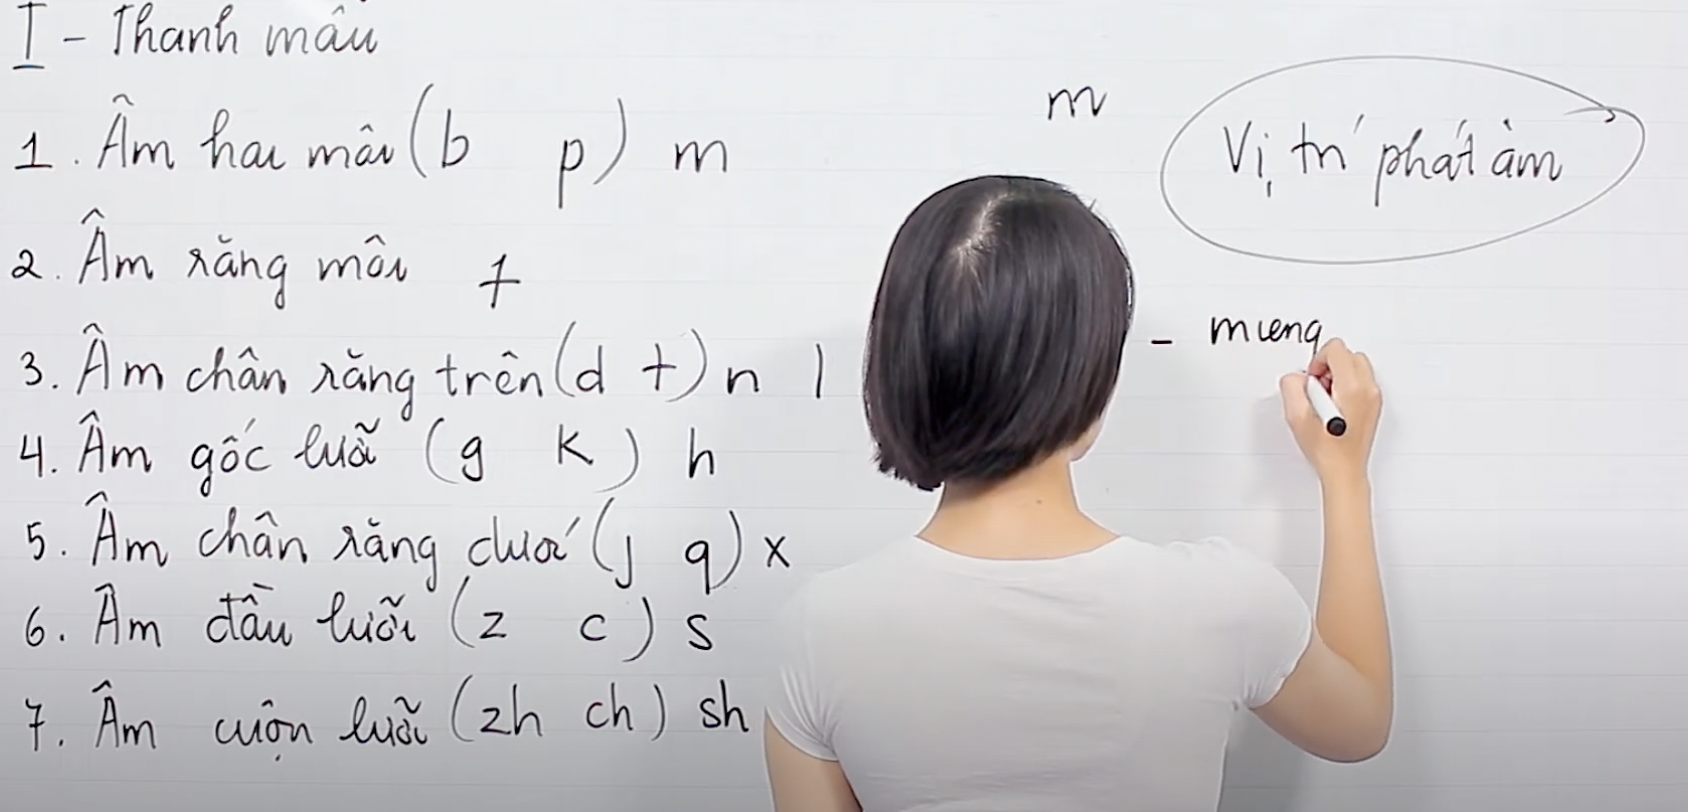 I - Thanh mẫu
1. Âm hai môi (b p) m
2. Âm răng môi f
3. Âm chân răng trên (d t) n l
4. Âm gốc lưỡi (g k) h
5. Âm chân răng dưới (j q) x
6. Âm đầu lưỡi (z c) s
7. Âm cuộn lưỡi (zh ch) sh
m
Vị trí phát âm
- mieng